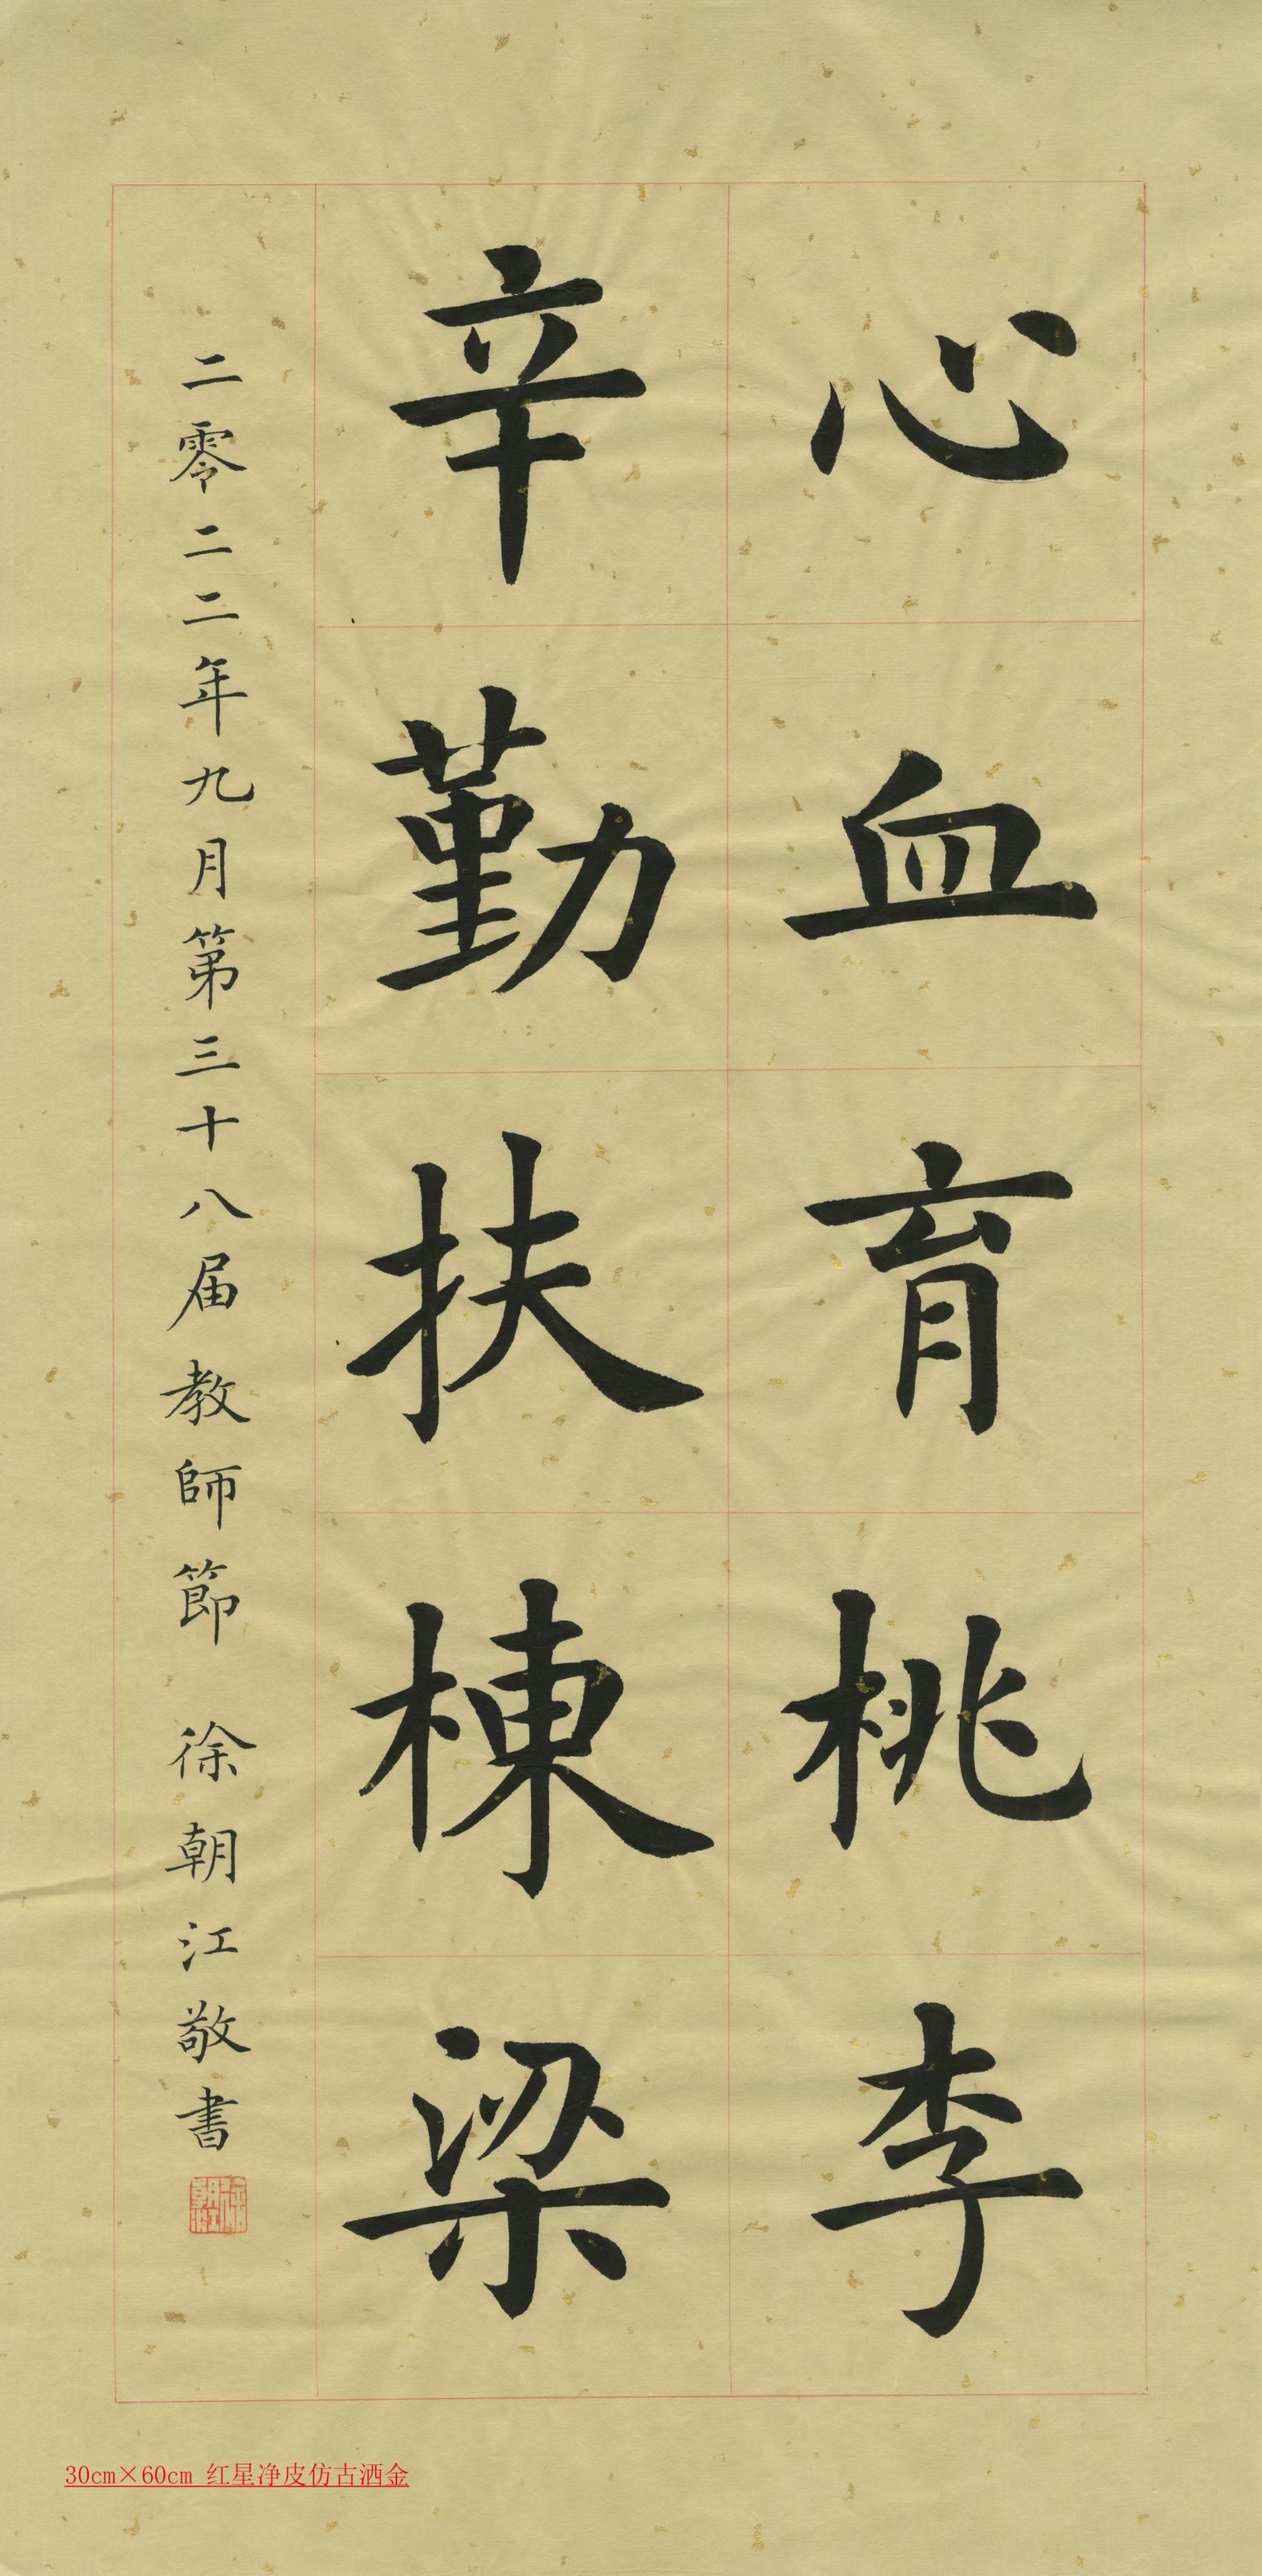 心血育桃李
辛勤扶棟梁
二零二二年九月第三十八届教師節 徐朝江敬書
30cm×60cm 红星净皮仿古洒金